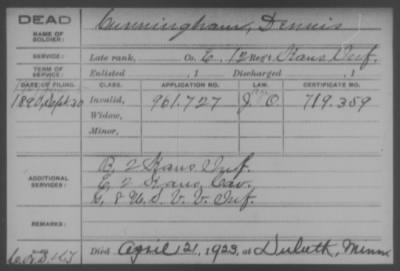 DEAD
Cunningham, Dennis
NAME OF
SOLDIER:
SERVICE: Late rank, Co. E, 12 Reg't Kans Inf.
TERM OF
SERVICE: Enlisted , 1 Discharged , 1
DATE OF FILING. CLASS. APPLICATION NO. LAW. CERTIFICATE NO.
1890, Sept. 20 Invalid, 961.727 719.359
Widow,
Minor,
ADDITIONAL
SERVICES:
B, 2 Kans Inf.
E, 2 Kans, Cav.
G, 8 U.S. V. V. Inf.
REMARKS:
Died April 21, 1923, at Duluth, Minn